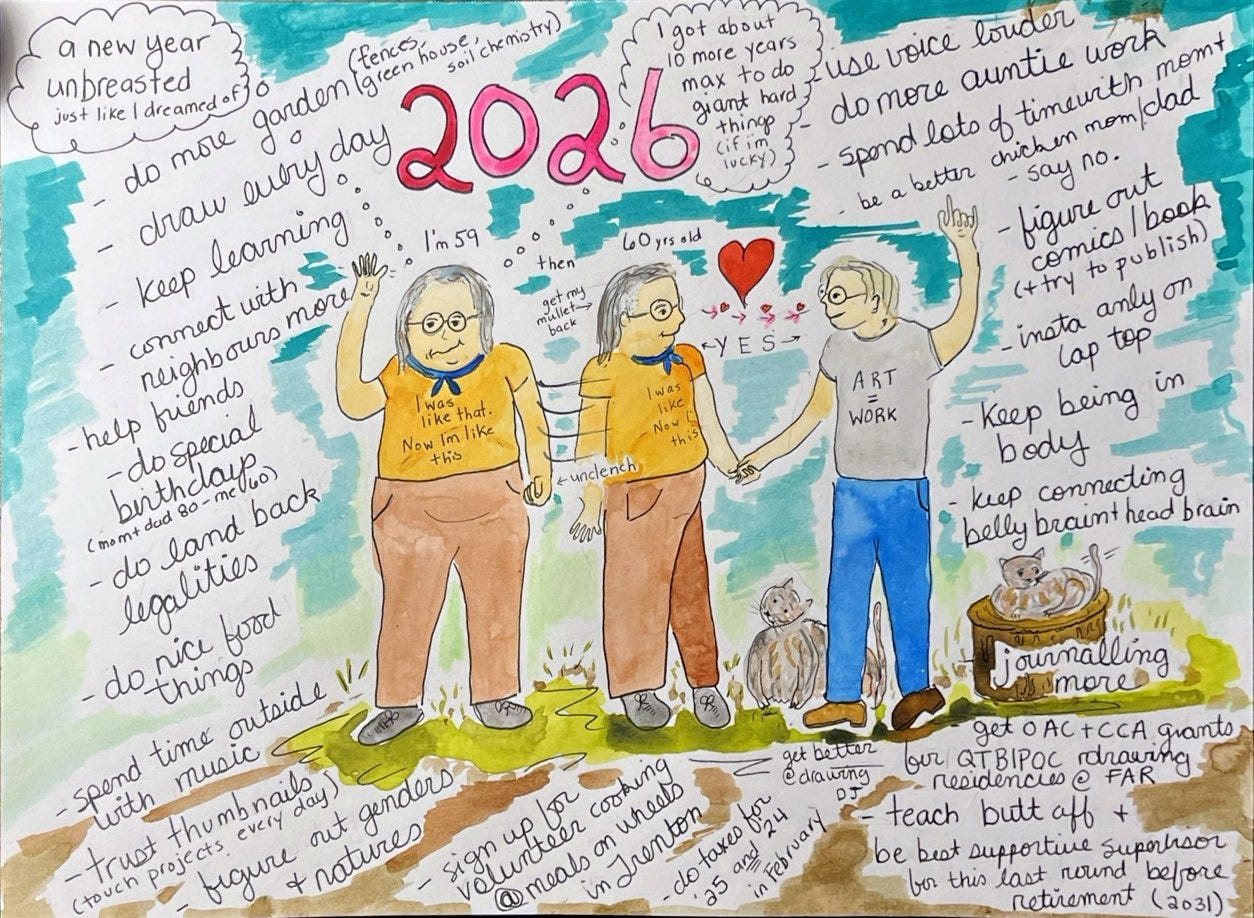 a new year
unbreasted
just like I dreamed of
- do more garden (fences,
green house,
soil chemistry)
- draw every day
- keep learning
- connect with
neighbours more
- help friends
- do special
birthdays
(mom + dad 80 - me 60)
- do land back
legalities
- do nice food
things
- spend time outside
with music
- trust thumbnails
(touch projects every day)
- figure out genders
+ natures
2026
I got about
10 more years
max to do
giant hard
things
(if im
lucky)
I'm 59
then
60 yrs old
get my
mullet →
back
← YES →
I was
like that.
Now I'm like
this
I was
like
Now
this
ART
=
WORK
← unclench
- use voice louder
- do more auntie work
- spend lots of time with mom+
dad
- be a better chicken mom/
- say no.
- figure out
comics / book
(+ try to publish)
- insta only on
lap top
- Keep being in
body
- keep connecting
belly brain + head brain
- journalling
more
- get OAC + CCA grants
for QTBIPOC rdrawing
residencies @ FAR
- teach butt off +
be best supportive supervisor
for this last round before
retirement (2031)
get better
@ drawing
DJ
- sign up for
volunteer cooking
@ meals on wheels
in Trenton
- do taxes for
'25 and 24
in February